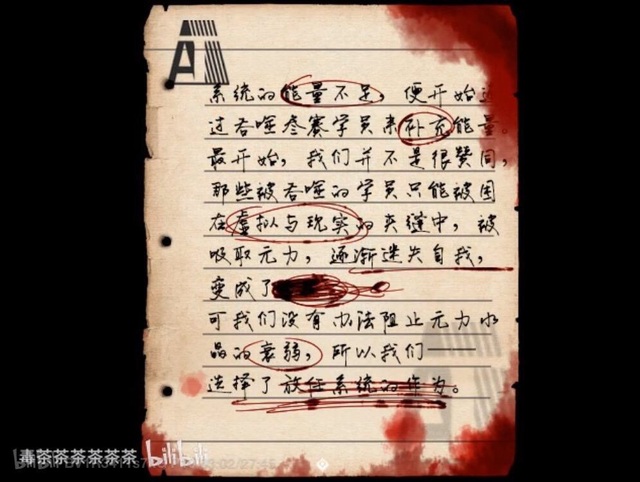 系统的能量不足，便开始通
过吞噬参赛学员来补充能量。
最开始，我们并不是很赞同，
那些被吞噬的学员只能被困
在虚拟与现实的夹缝中，被
吸取元力，逐渐迷失自我，
变成了
可我们没有办法阻止元力水
晶的衰弱，所以我们——
选择了放任系统的作为。
毒茶茶茶茶茶茶 bilibili